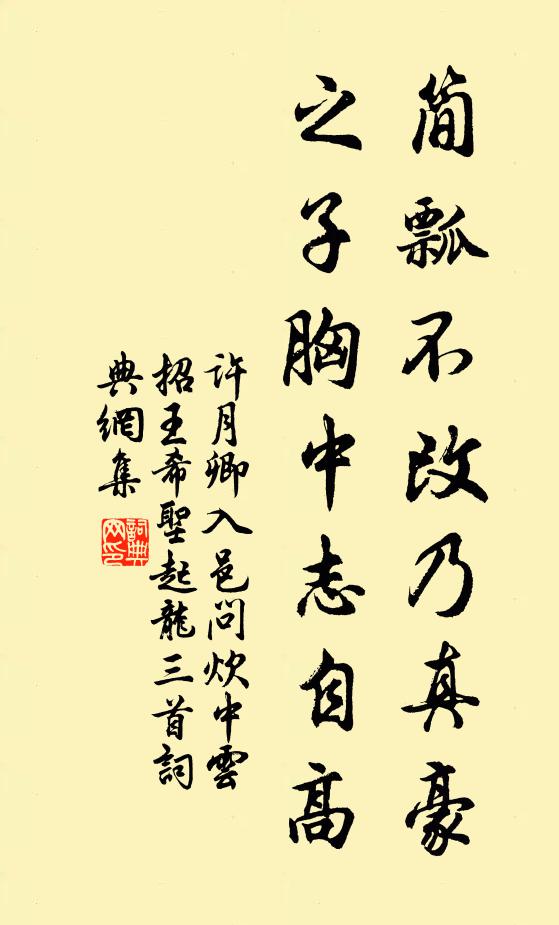 简瓢不改乃真豪
之子胸中志自高
許月卿入邑问炊中雲
招王希聖起龍三首詞
典網集
詞典
网印